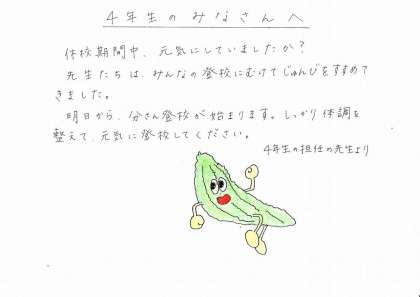 4年生のみなさんへ
休校期間中、元気にしていましたか？
先生たちは、みんなの登校にむけてじゅんびをすすめて
きました。
明日から、分さん登校が始まります。しっかり体調を
整えて、元気に登校してください。
4年生の担任の先生より